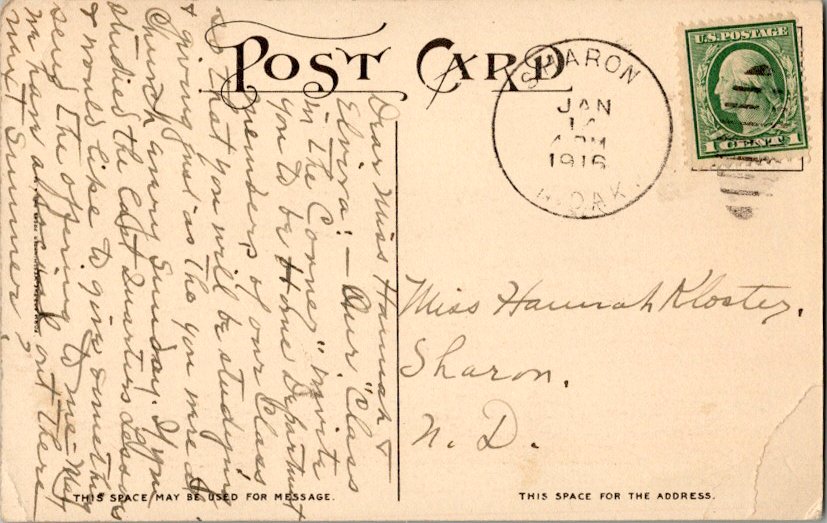 POST CARD
SHARON
JAN
14
4 PM
1916
N. DAK.
U.S. POSTAGE
1 CENT 1
Dear Miss Hannah &
Elvira: — Our "Class
in the Corner" invite
you to be Home Department
members of our Class
so that you will be studying
& giving just as tho you were at
Church every Sunday. If you
studied the last Quarters Lessons
& would like to give something
send the offering to me — May
we have a social out there
next Summer?
Miss Hannah Kloster,
Sharon,
N. D.
THIS SPACE MAY BE USED FOR MESSAGE.
THIS SPACE FOR THE ADDRESS.